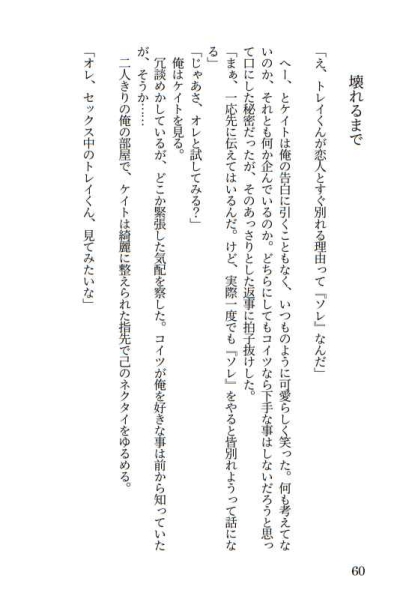 壊れるまで
「え、トレイくんが恋人とすぐ別れる理由って『ソレ』なんだ」
へー、とケイトは俺の告白に引くこともなく、いつものように可愛らしく笑った。何も考えてな
いのか、それとも何か企んでいるのか。どちらにしてもコイツなら下手な事はしないだろうと思っ
て口にした秘密だったが、そのあっさりとした返事に拍子抜けした。
「まぁ、一応先に伝えてはいるんだ。けど、実際一度でも『ソレ』をやると皆別れようって話にな
る」
「じゃあさ、オレと試してみる？」
俺はケイトを見る。
冗談めかしているが、どこか緊張した気配を察した。コイツが俺を好きな事は前から知っていた
が、そうか……
二人きりの俺の部屋で、ケイトは綺麗に整えられた指先で己のネクタイをゆるめる。
「オレ、セックス中のトレイくん、見てみたいな」
60